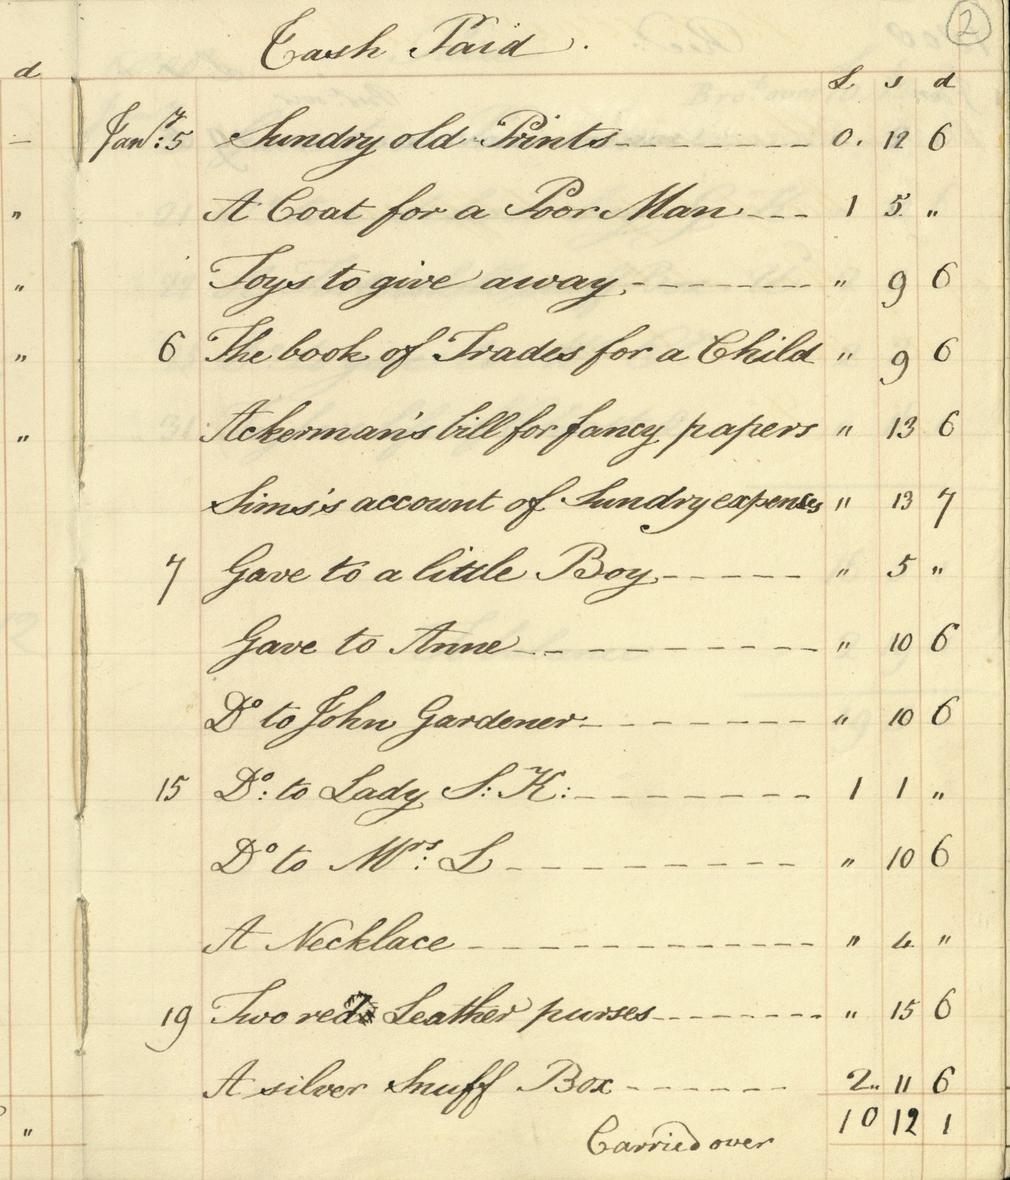 2
Cash Paid.
d £ s d
– Jan.y: 5 Sundry old Prints 0. 12 6
" A Coat for a Poor Man 1 5 "
" Toys to give away " 9 6
" 6 The book of Trades for a Child " 9 6
" Ackerman's bill for fancy papers " 13 6
Sims's account of Sundry expenses " 13 7
7 Gave to a little Boy " 5 "
Gave to Anne " 10 6
Do to John Gardener " 10 6
15 Do: to Lady S: K: 1 1 "
Do to Mrs: L " 10 6
A Necklace " 4 "
19 Two red Leather purses " 15 6
A silver Snuff Box 2 " 11 6
" Carried over 10 12 1